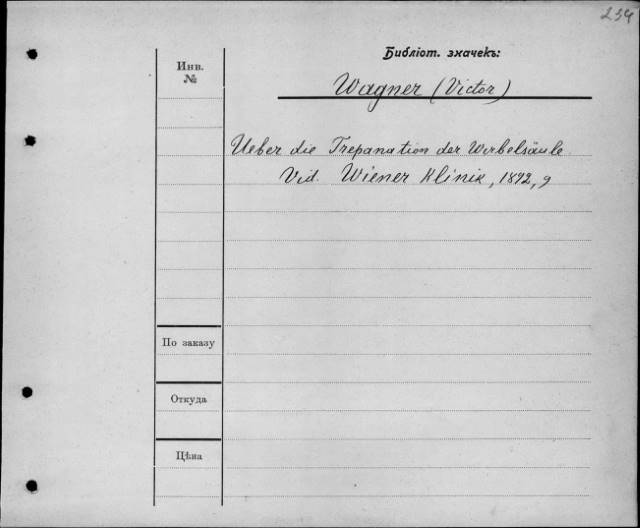 234
Библіот. значекъ:
Инв.
№
Wagner (Victor)
Ueber die Trepanation der Wirbelsäule.
Vid. Wiener Klinik, 1892, 9
По заказу
Откуда
Цѣна